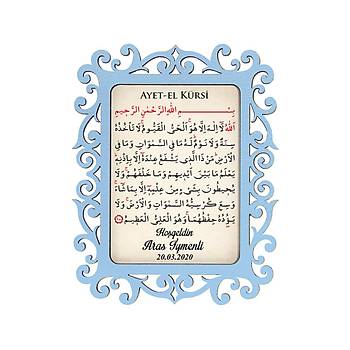 AYET-EL KÜRSİ
بِسْــــمِ اللهِ الرَّحْمٰنِ الرَّحِيمِ
اَللهُ لَا اِلٰهَ اِلَّا هُوَ اَلْحَيُّ الْقَيُّومُ لَا تَأْخُذُهُ
سِنَةٌ وَلَا نَوْمٌ لَهُ مَا فِي السَّمٰوَاتِ وَمَا فِي
الْاَرْضِ مَنْ ذَا الَّذِي يَشْفَعُ عِنْدَهُ اِلَّا بِاِذْنِهِ
يَعْلَمُ مَا بَيْنَ اَيْدِيهِمْ وَمَا خَلْفَهُمْ وَلَا
يُحِيطُونَ بِشَيْءٍ مِنْ عِلْمِهِ اِلَّا بِمَا شَاءَ
وَسِعَ كُرْسِيُّهُ السَّمٰوَاتِ وَالْاَرْضَ وَلَا
يَؤُدُهُ حِفْظُهُمَا وَهُوَ الْعَلِيُّ الْعَظِيمُ
Hoşgeldin
Aras Iymenli
20.03.2020